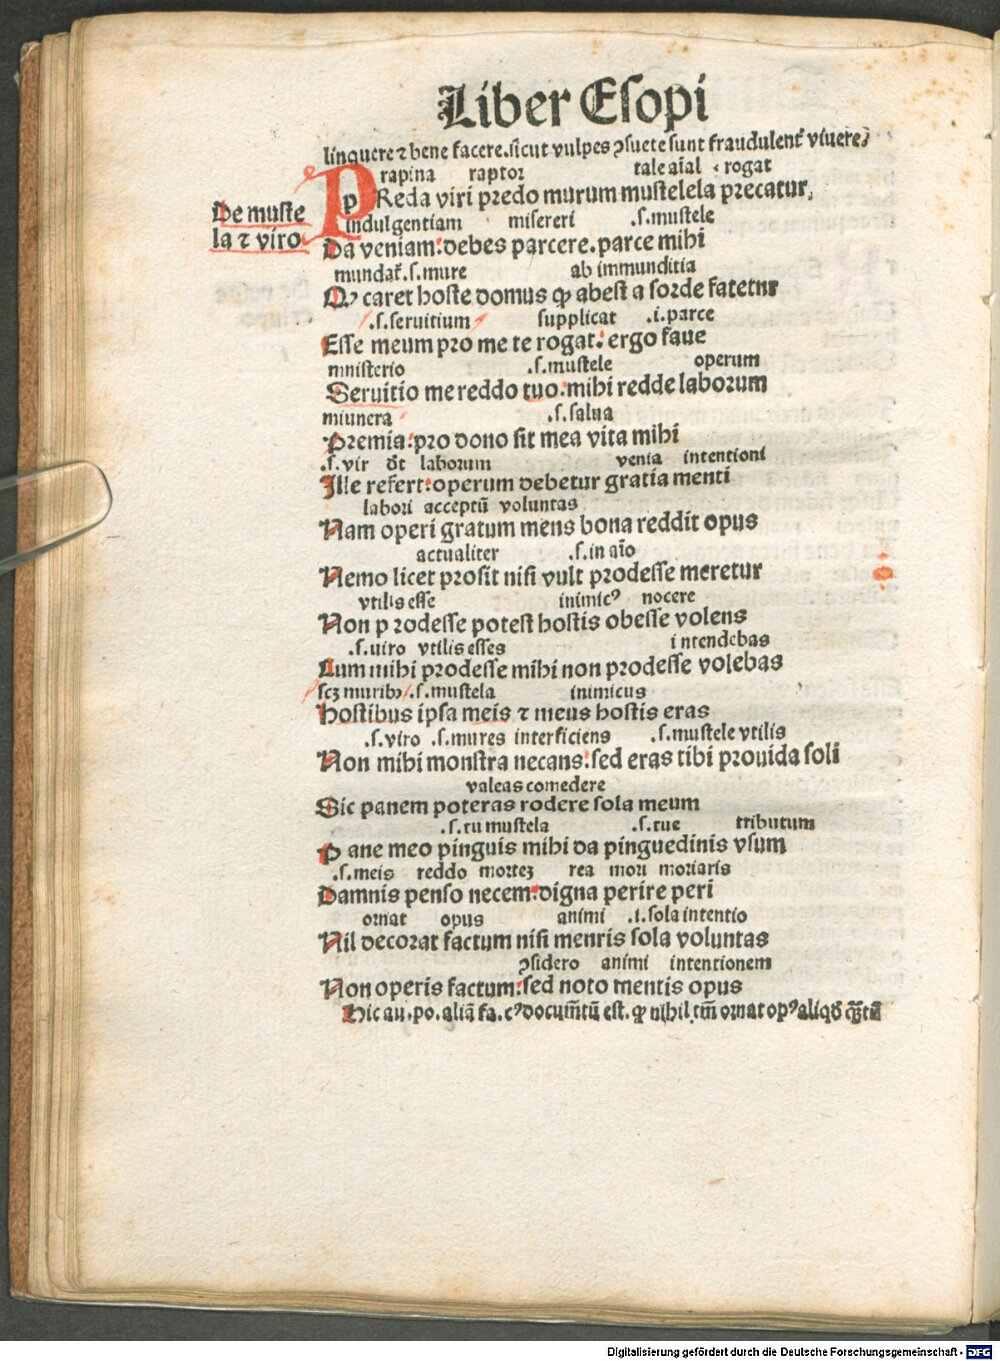 Liber Esopi
linquere ⁊ bene facere. sicut vulpes ꝯsuete sunt fraudulent᷑ viuere
rapina raptor tale aīal rogat
PReda viri predo murum mustelela precatur,
De muste
la ⁊ viro
indulgentiam misereri .s.mustele
Da veniam: debes parcere. parce mihi
mundat᷑ .s.mure ab immunditia
caret hoste domus ꝙ abest a sorde fatetur
.s.seruitium supplicat .i.parce
Esse meum pro me te rogat: ergo faue
ministerio .s.mustele operum
Seruitio me reddo tuo: mihi redde laborum
miunera .s.salua
Premia: pro dono sit mea vita mihi
.s.vir dt laborum venia intentioni
Ille refert: operum debetur gratia menti
labori acceptū voluntas
Nam operi gratum mens bona reddit opus
actualiter .s.in aīo
Nemo licet prosit nisi vult prodesse meretur
vtilis esse inimicꝰ nocere
Non prodesse potest hostis obesse volens
.s.uiro vtilis esses intendebas
Cum mihi prodesse mihi non prodesse volebas
scꝫ muribꝫ .s.mustela inimicus
Hostibus ipsa meis ⁊ meus hostis eras
.s.viro .s.mures interficiens .s.mustele vtilis
Non mihi monstra necans: sed eras tibi prouida soli
valeas comedere
Sic panem poteras rodere sola meum
.s.tu mustela .s.tue tributum
Pane meo pinguis mihi da pinguedinis vsum
.s.meis reddo morteꝫ rea mori moriaris
Damnis penso necem: digna perire peri
ornat opus animi .i.sola intentio
Nil decorat factum nisi menris sola voluntas
ꝯsidero animi intentionem
Non operis factum: sed noto mentis opus
Hic au. po. aliā fa. cꝰ documētū est. ꝙ nihil tm̄ ornat opꝰ
Digitalisierung gefördert durch die Deutsche Forschungsgemeinschaft - DFG